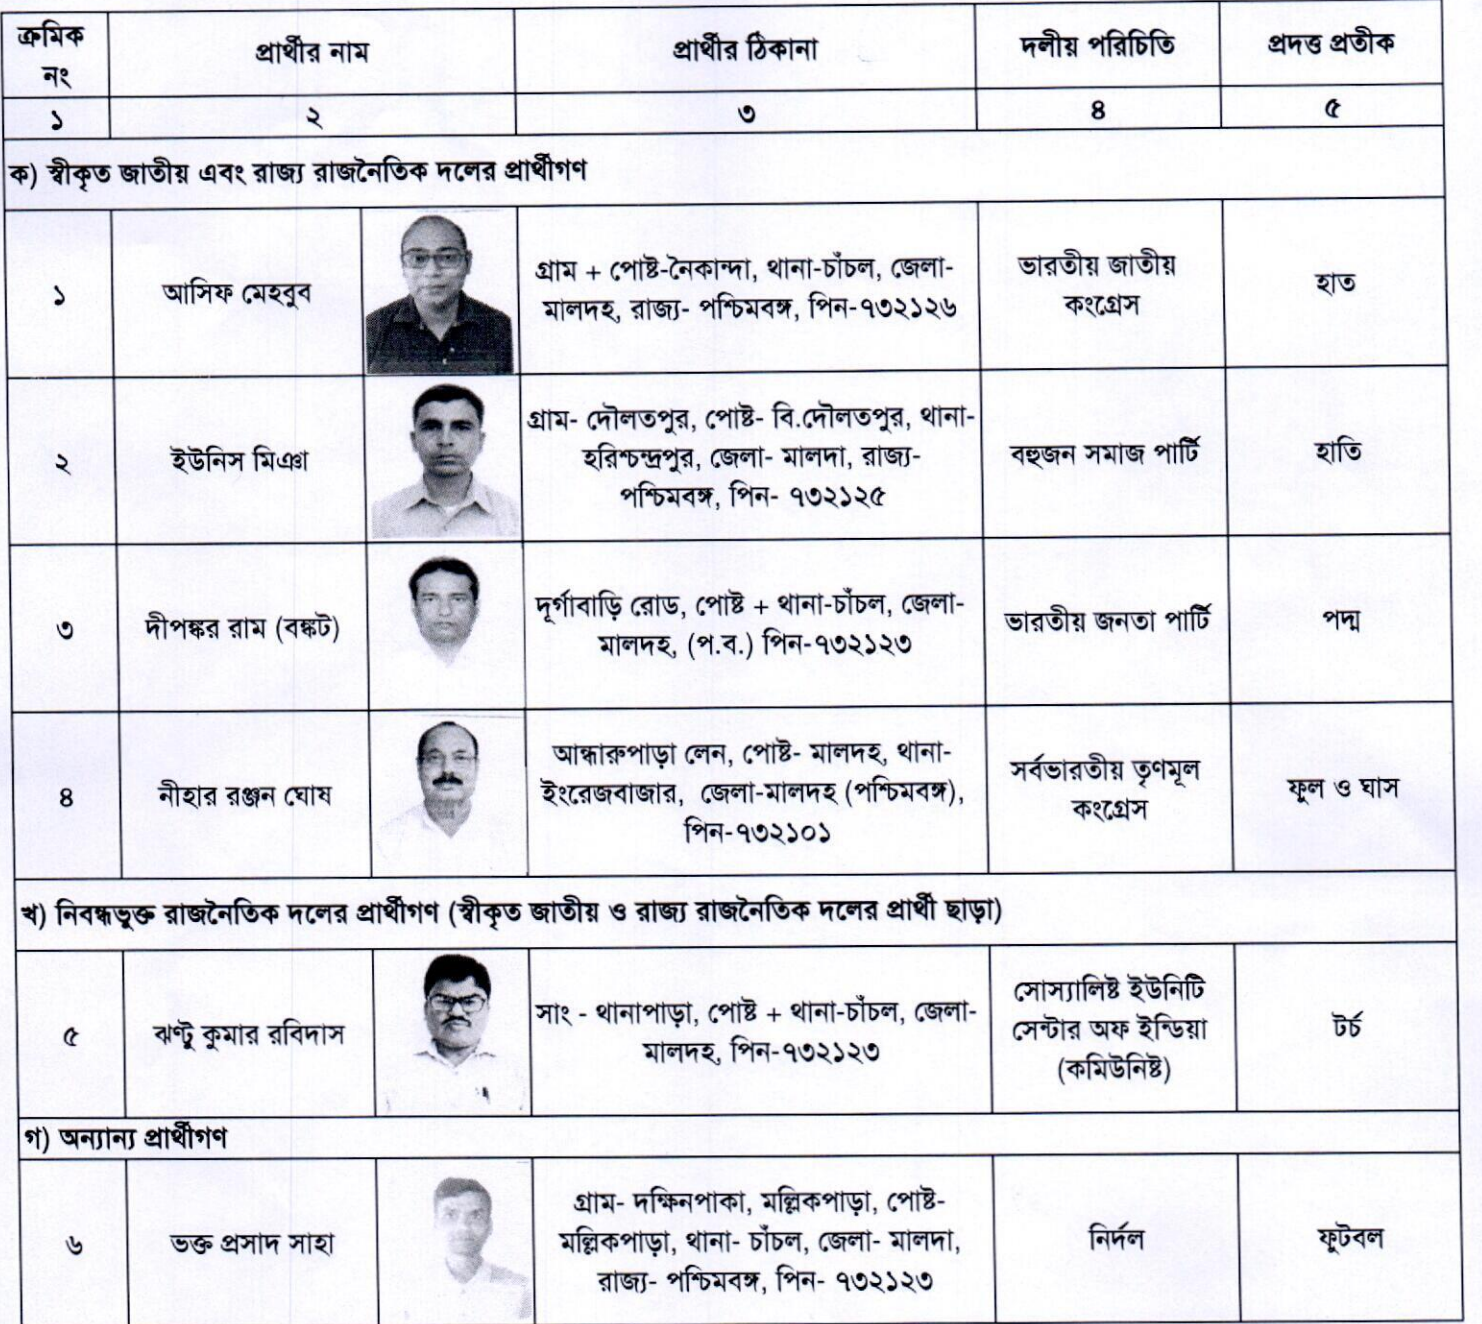 ক্রমিক নং প্রার্থীর নাম প্রার্থীর ঠিকানা দলীয় পরিচিতি প্রদত্ত প্রতীক
১ ২ ৩ ৪ ৫
ক) স্বীকৃত জাতীয় এবং রাজ্য রাজনৈতিক দলের প্রার্থীগণ
১ আসিফ মেহবুব
গ্রাম + পোষ্ট-নৈকান্দা, থানা-চাঁচল, জেলা-
মালদহ, রাজ্য- পশ্চিমবঙ্গ, পিন-৭৩২১২৬
ভারতীয় জাতীয়
কংগ্রেস
হাত
২ ইউনিস মিঞা
গ্রাম- দৌলতপুর, পোষ্ট- বি.দৌলতপুর, থানা-
হরিশ্চন্দ্রপুর, জেলা- মালদা, রাজ্য-
পশ্চিমবঙ্গ, পিন- ৭৩২১২৫
বহুজন সমাজ পার্টি
হাতি
৩ দীপঙ্কর রাম (বঙ্কট)
দূর্গাবাড়ি রোড, পোষ্ট + থানা-চাঁচল, জেলা-
মালদহ, (প.ব.) পিন-৭৩২১২৩
ভারতীয় জনতা পার্টি
পদ্ম
৪ নীহার রঞ্জন ঘোষ
আন্ধারুপাড়া লেন, পোষ্ট- মালদহ, থানা-
ইংরেজবাজার, জেলা-মালদহ (পশ্চিমবঙ্গ),
পিন-৭৩২১০১
সর্বভারতীয় তৃণমূল
কংগ্রেস
ফুল ও ঘাস
খ) নিবন্ধভুক্ত রাজনৈতিক দলের প্রার্থীগণ (স্বীকৃত জাতীয় ও রাজ্য রাজনৈতিক দলের প্রার্থী ছাড়া)
৫ ঝণ্টু কুমার রবিদাস
সাং - থানাপাড়া, পোষ্ট + থানা-চাঁচল, জেলা-
মালদহ, পিন-৭৩২১২৩
সোস্যালিষ্ট ইউনিটি
সেন্টার অফ ইন্ডিয়া
(কমিউনিষ্ট)
টর্চ
গ) অন্যান্য প্রার্থীগণ
৬ ভক্ত প্রসাদ সাহা
গ্রাম- দক্ষিনপাকা, মল্লিকপাড়া, পোষ্ট-
মল্লিকপাড়া, থানা- চাঁচল, জেলা- মালদা,
রাজ্য- পশ্চিমবঙ্গ, পিন- ৭৩২১২৩
নির্দল
ফুটবল